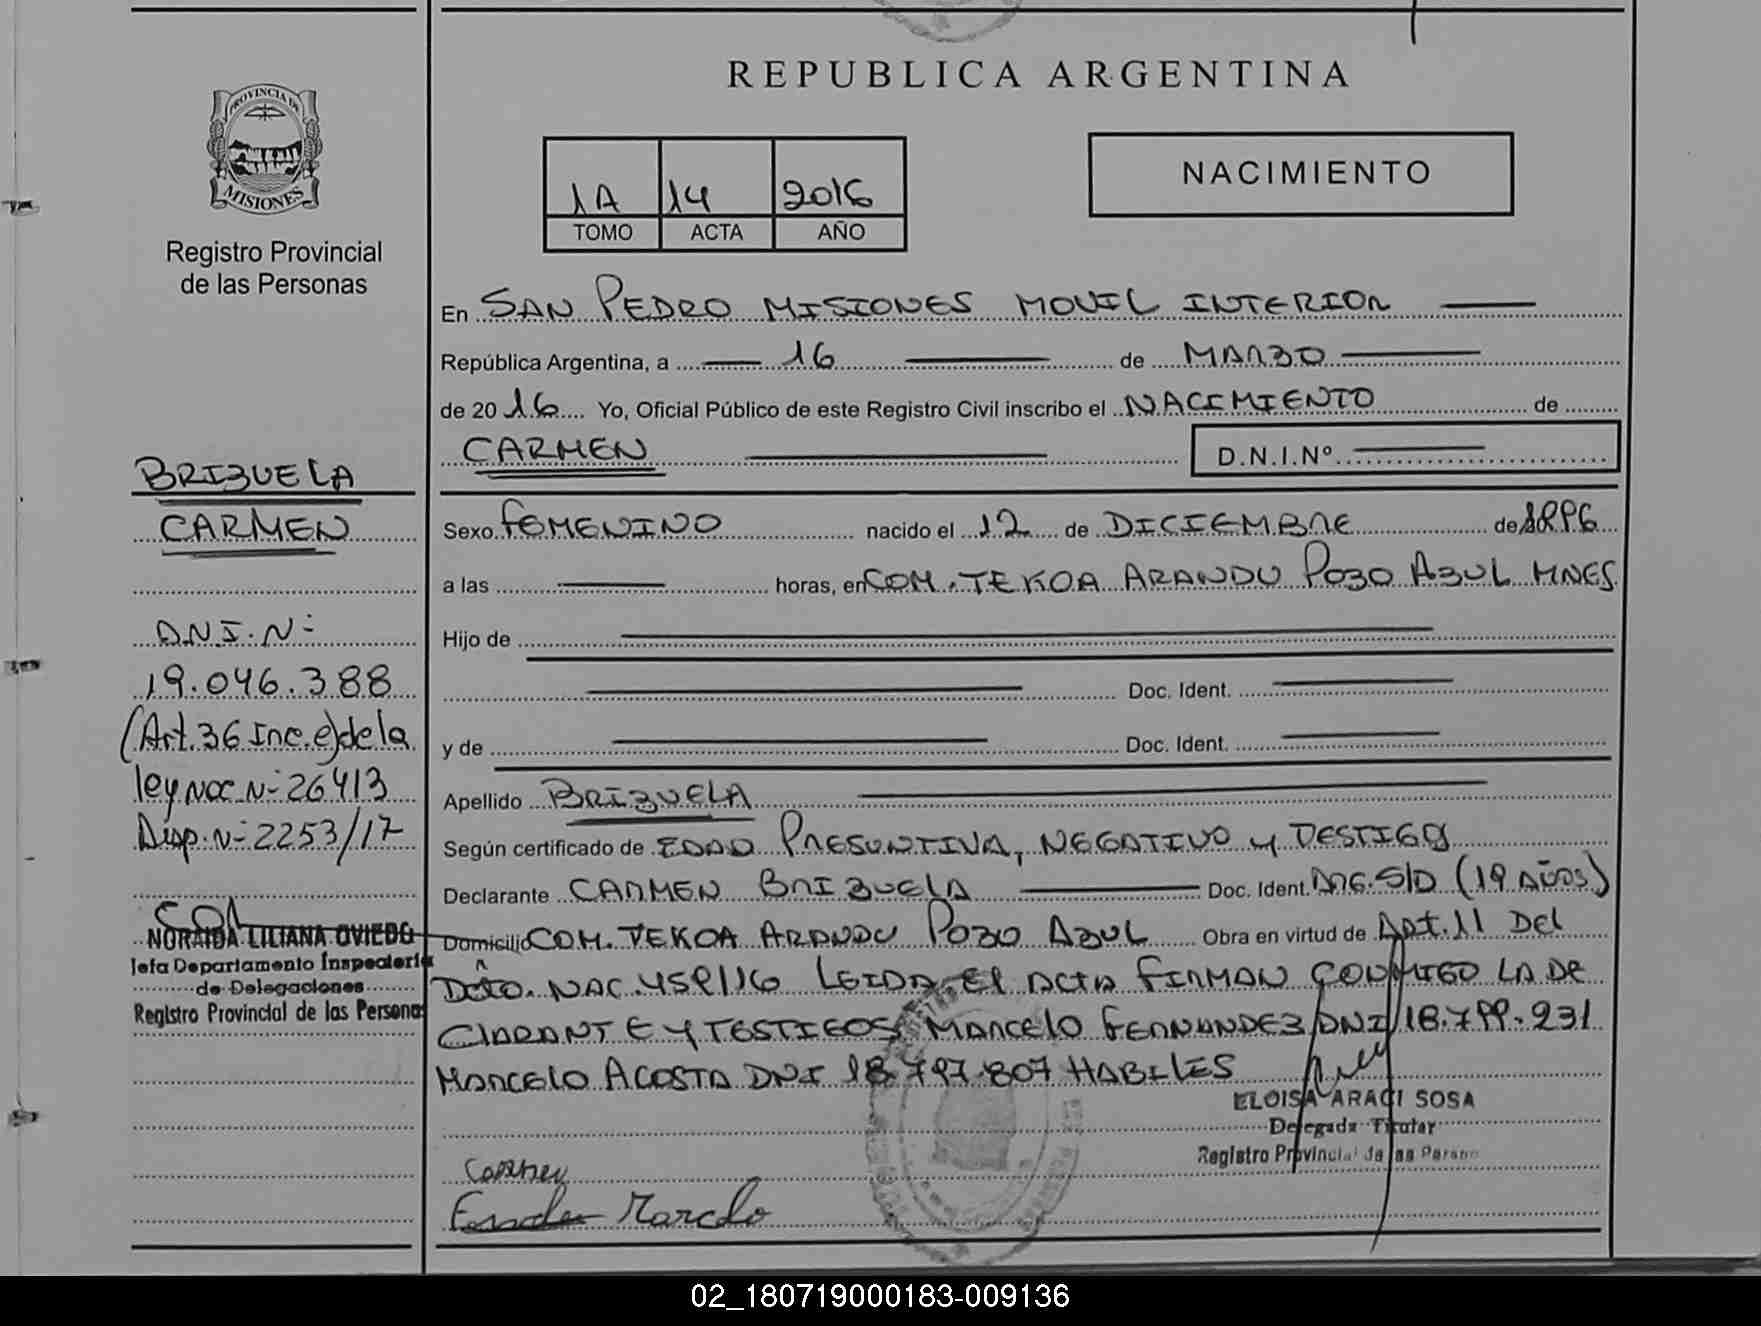 REPUBLICA ARGENTINA
PROVINCIA DE
MISIONES
Registro Provincial
de las Personas
1A 14 2016
TOMO ACTA AÑO
NACIMIENTO
En SAN PEDRO MISIONES MOVIL INTERIOR
República Argentina, a 16 de MARZO
de 2016 Yo, Oficial Público de este Registro Civil inscribo el NACIMIENTO de
CARMEN D.N.I.Nº
BRIZUELA
CARMEN
D.N.I. Nº
19.046.388
(Art. 36 Inc. e) de la
ley NAC Nº 26413
Disp. Nº 2253/17
NORAIDA LILIANA OVIEDO
Jefa Departamento Inspectoria
de Delegaciones
Registro Provincial de las Personas
Sexo FEMENINO nacido el 12 de DICIEMBRE de 1996
a las horas, en COM. TEKOA ARANDU POZO AZUL MNES
Hijo de
Doc. Ident.
y de Doc. Ident.
Apellido BRIZUELA
Según certificado de EDAD PRESUNTIVA, NEGATIVO y TESTIGOS
Declarante CARMEN BRIZUELA Doc. Ident. ARG. S/D (19 AÑOS)
Domicilio COM. TEKOA ARANDU POZO AZUL Obra en virtud de ART. 11 DEL
DCTO. NAC. 459/16 LEIDA EL ACTA FIRMAN CONMIGO LA DE
CLARANTE y TESTIGOS MARCELO FERNANDEZ DNI 18.799.231
MARCELO ACOSTA DNI 18.797.807 HABILES
ELOISA ARACI SOSA
Delegada Titular
Registro Provincial de las Personas
Carmen
Marcelo
02_180719000183-009136